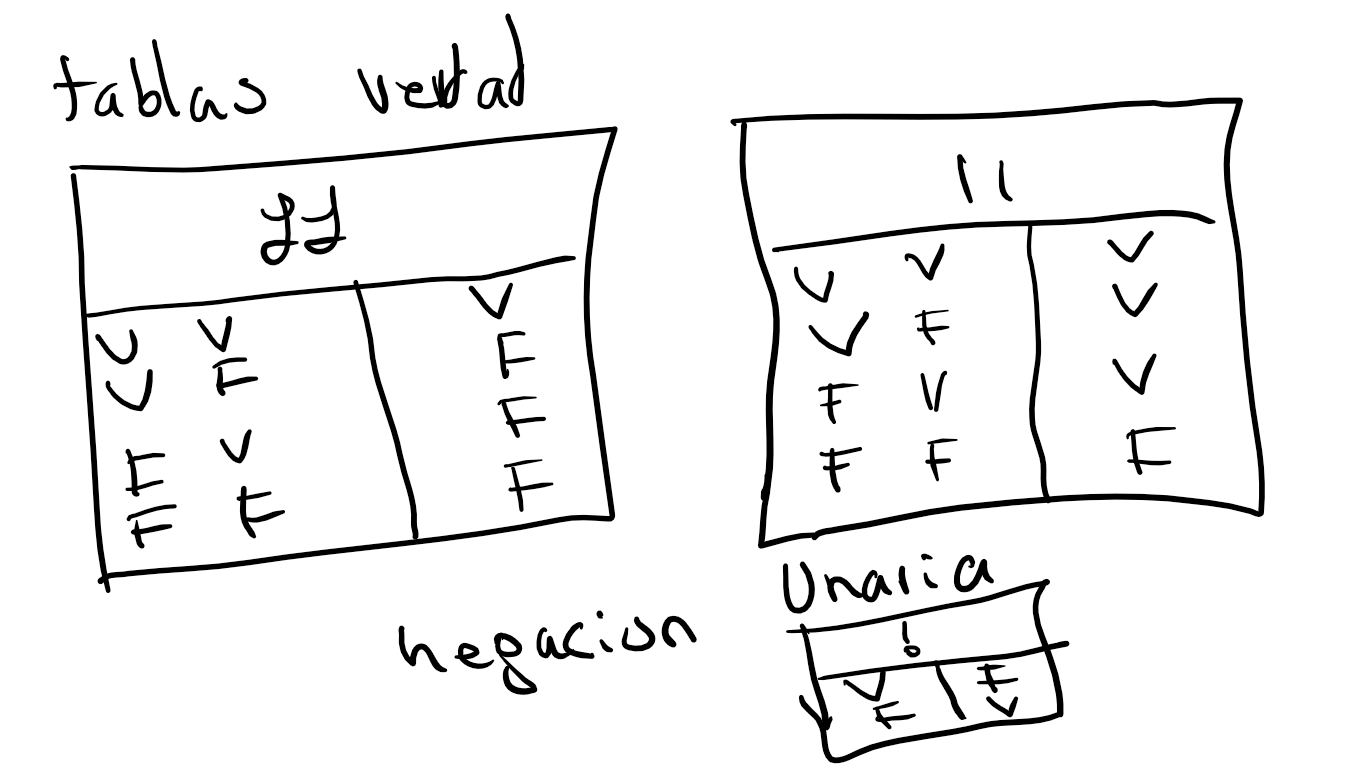 tablas verdad
&&
V V V
V F F
F V F
F F F
||
V V V
V F V
F V V
F F F
negacion Unaria
!
V F
F V